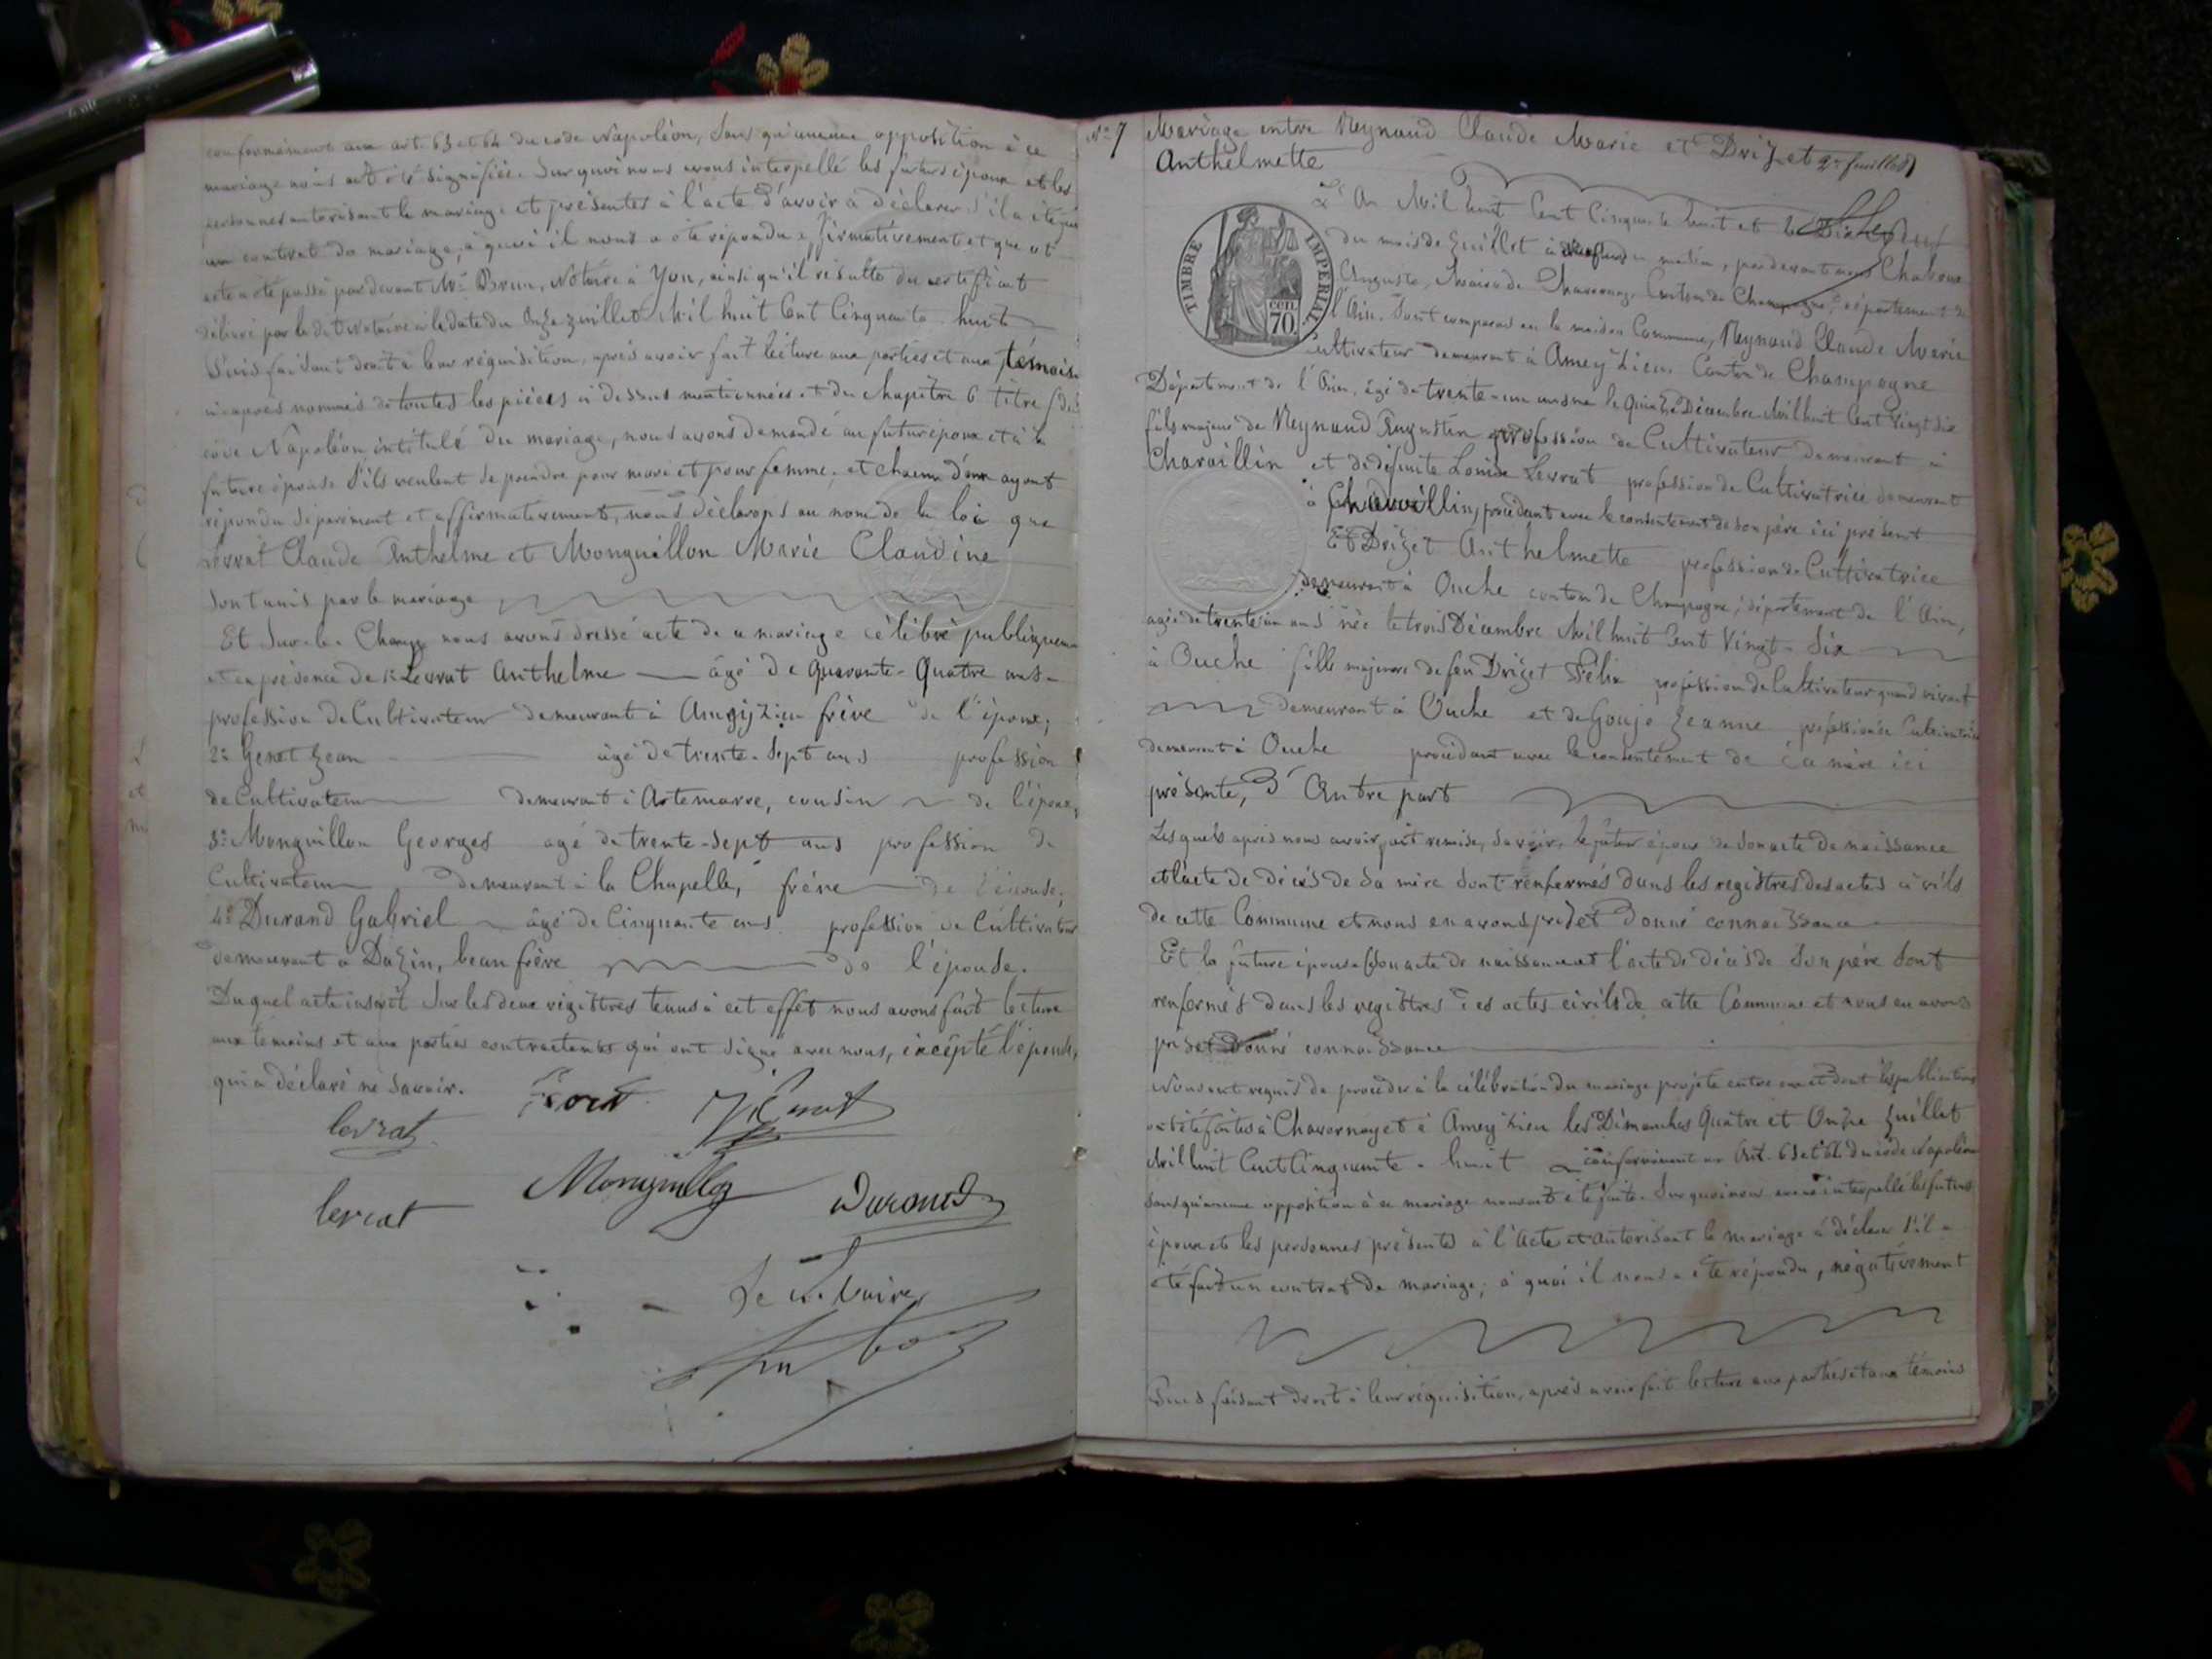 conformément aux art. 63 et 64 du code Napoléon, sans qu'aucune opposition à ce
mariage nous ait été signifiée. Sur quoi nous avons interpellé les futurs époux et les
personnes autorisant le mariage et présentes à l'acte d'avoir à déclarer s'il a été
un contrat de mariage, à quoi il nous a été répondu affirmativement et que cet
acte a été passé par devant Me Brun, Notaire à Yon, ainsi qu'il résulte du certificat
délivré par le dit Notaire à la date du Onze juillet Mil huit Cent Cinquante huit
Puis faisant droit à leur réquisition, après avoir fait lecture aux parties et aux témoins
ci-après nommés de toutes les pièces ci dessus mentionnées et du chapitre 6 titre 5 du
code Napoléon, intitulé Du mariage, nous avons demandé au futur époux et à la
future épouse s'ils veulent se prendre pour mari et pour femme, et chacun d'eux ayant
répondu séparément et affirmativement, nous déclarons au nom de la loi que
Levrat Claude Anthelme et Monguillon Marie Claudine
sont unis par le mariage
Et Sur-le-Champ nous avons dressé acte de ce mariage célébré publiquement
et en présence de 1o Levrat Anthelme âgé de quarante-Quatre ans
profession De Cultivateur demeurant à frère de l'époux;
2o Genet Jean âgé de trente-sept ans profession
de Cultivateur demeurant à Artemarre, cousin de l'époux,
3o Monguillon Georges agé de trente-sept ans profession de
Cultivateur demeurant à la Chapelle, frère de l'épouse;
4o Durand Gabriel âgé de Cinquante ans profession de Cultivateur
demeurant à Dazin, beau frère de l'épouse.
Duquel acte inscrit sur les deux régistres tenus à cet effet nous avons fait lecture
aux témoins et aux parties contractantes qui ont signé avec nous, excepté l'épouse,
qui a déclaré ne savoir.
levrat
levrat Durand
Le Maire
No 7 Mariage entre Reynaud Claude Marie et Drizet 2e feuillet
Anthelmette
L'An Mil huit Cent Cinquante huit et le
du mois de Juillet à du matin, par devant nous
Auguste, Maire de Chavornay, Canton de Champagne, département de
l'Ain. Sont comparus en la maison Commune, Reynaud Claude Marie
TIMBRE IMPERIAL
cen. 70
Cultivateur demeurant à Ameyzieu Canton de Champagne
Département de l'Ain, âgé de trente-un ans né le quinze Décembre Mil huit Cent vingt six
fils majeur de Reynaud Augustin profession de Cultivateur demeurant à
Charaillin et de défunte Louise Levrat profession de Cultivatrice demeurant
à procédant avec le consentement de son père ici présent
Et Drizet Anthelmette profession de Cultivatrice
demeurant à Ouche canton de Champagne, département de l'Ain,
agée de trente un ans née le trois Décembre Mil huit Cent Vingt-Six
à Ouche fille majeure de feu Drizet Félix profession de Cultivateur quand vivait
demeurant à Ouche et de Goujo Jeanne profession de Cultivatrice
demeurant à Ouche procédant avec le consentement de sa mère ici
présente, D'Autre part
Lesquels après nous avoir fait remise, savoir, le futur époux de son acte de naissance
et l'acte de décès de sa mère sont renfermés dans les registres des actes civils
de cette Commune et nous en avons pris et donné connaissance
Et la future épouse son acte de naissance et l'acte de décès de son père sont
renfermés dans les registres des actes civils de cette Commune et nous en avons
pris et donné connaissance
Nous ont requis de procéder à la célébration du mariage projeté entre eux et dont les publications
ont été faites à Chavornay et à Ameyzieu les Dimanches Quatre et Onze Juillet
Mil huit Cent Cinquante-huit conformément aux Art. 63 et 64 du code Napoléon
sans qu'aucune opposition à ce mariage nous ait été faite. Sur quoi nous avons interpellé les futurs
époux et les personnes présentes à l'Acte et autorisant le mariage à déclarer s'il a
été fait un contrat de mariage, à quoi il nous a été répondu, négativement
Puis faisant droit à leur réquisition, après avoir fait lecture aux parties et aux témoins